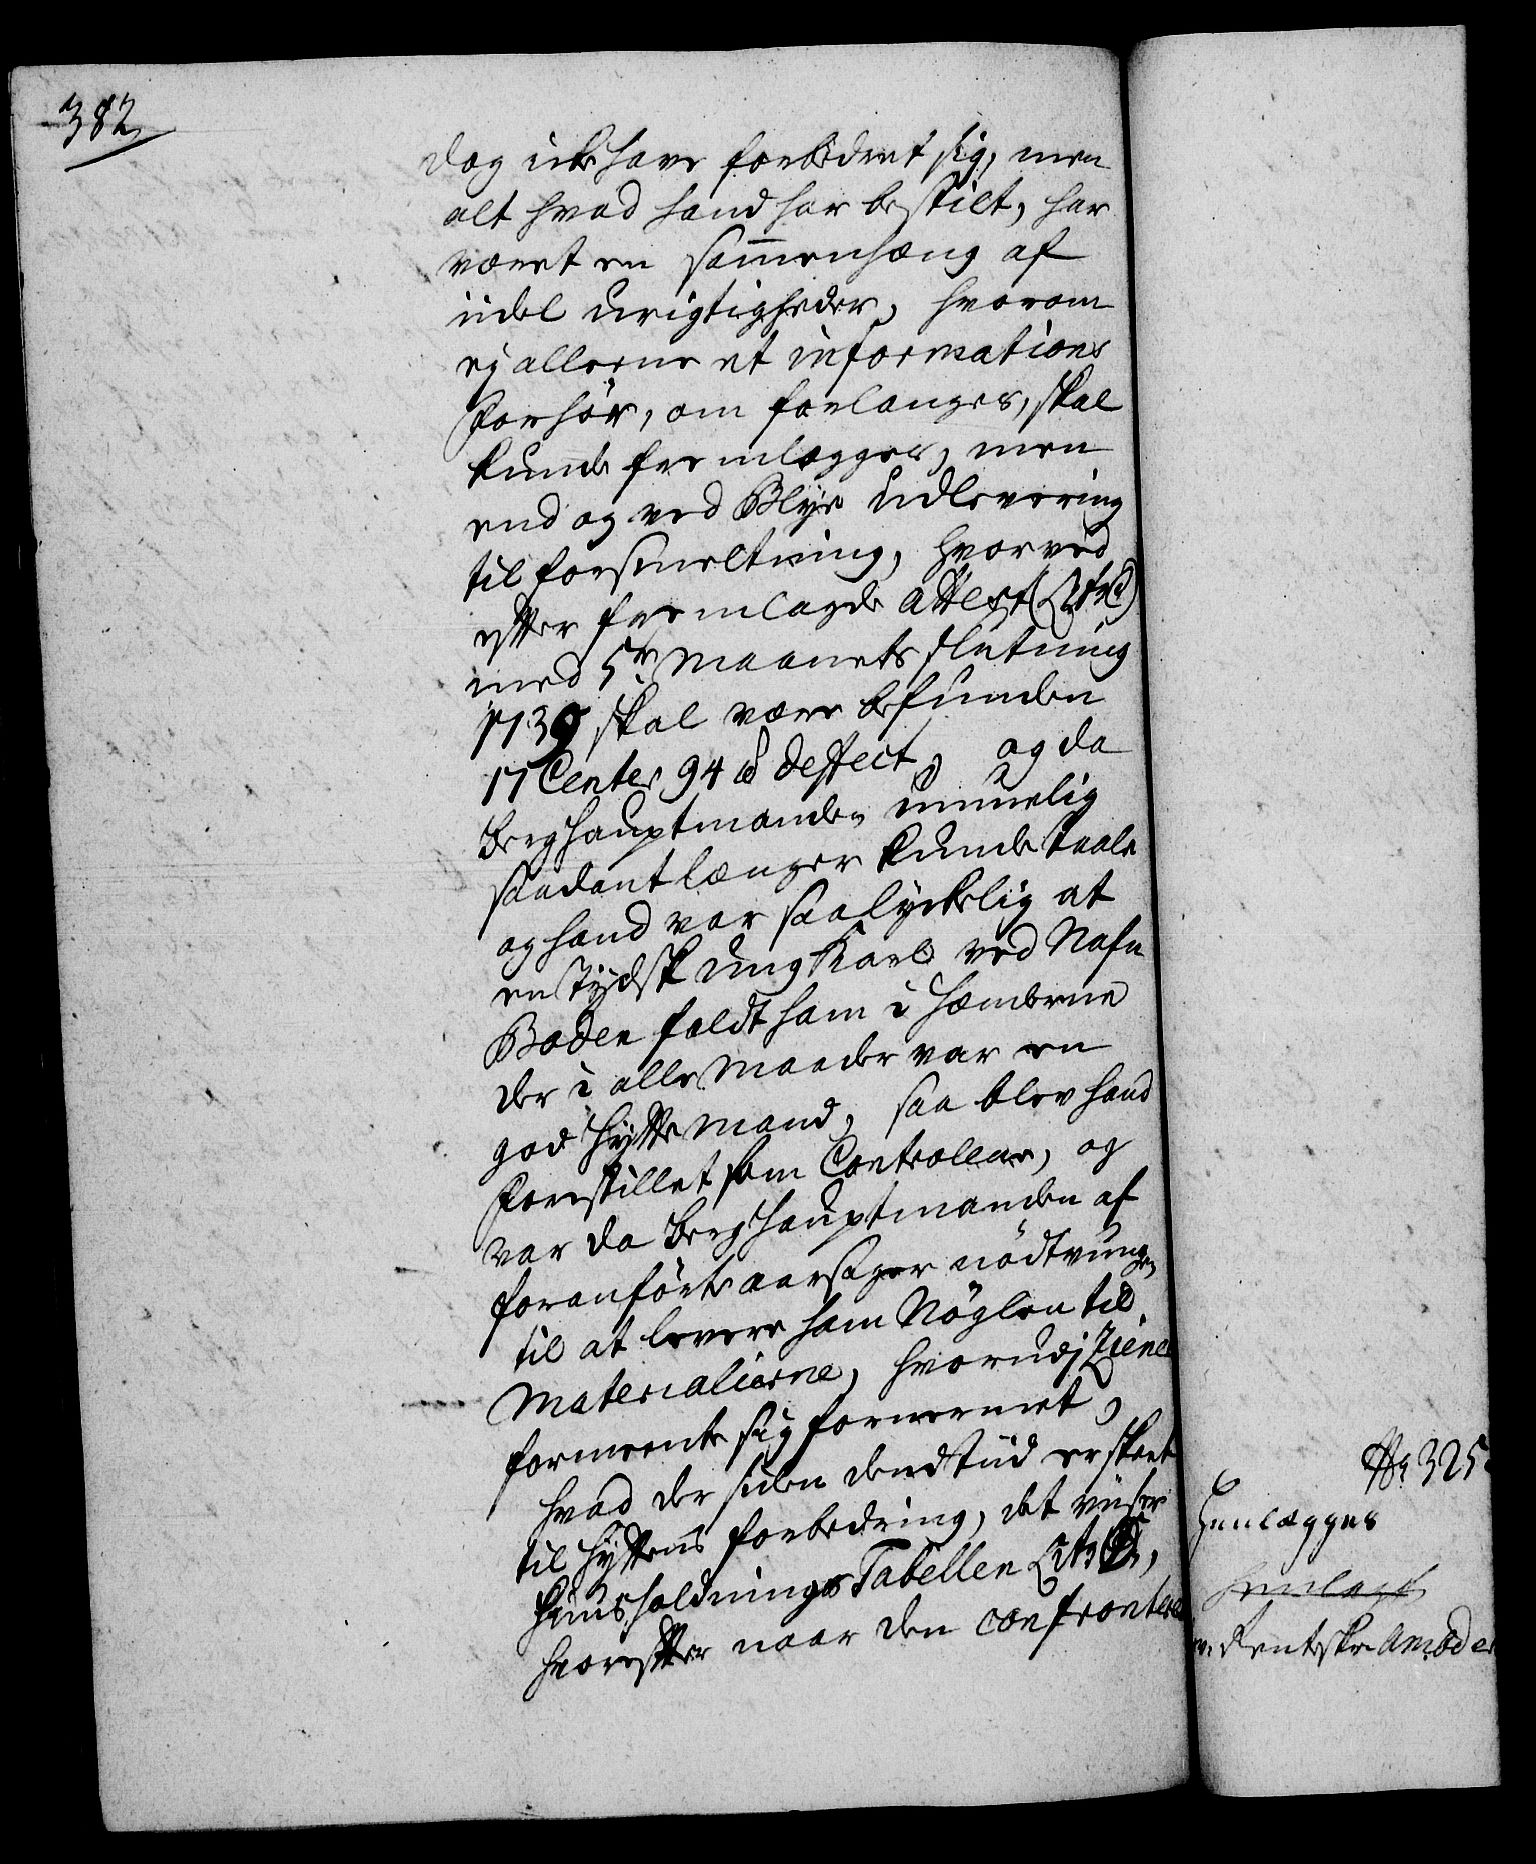 382
dog icke have forbedret sig, men
alt hvad hand har bestilt, har
været en sam̄enhæng af
iidel urigtigheder, hvorom
ej alleene et informations
Forhör, om forlanges, skal
kunde fremlægges, men
end og ved Blÿe udlevering
til forsmeltning, hvorved
efter fremlagde Attest (Litr C)
med 5te Maanets slutning
1739 skal være befunden
17 Center 94 ℔ deffect, og da
Berghauptmanden umuelig
saadant længer kunde taale
og hand var saa lyckelig at
en Tydsk ung Karl ved Nafn
Boden faldt ham i Hænderne
der i alle Maader var en
god Hytte Mand, saa blev hand
Forestillet som Controlleur, og
var da Berghauptmanden af
foranförte aarsager nödtvungen
til at levere ham Nöglen til
Materialierne, hvorudj Ziener
formeente sig fornermet,
hvad der siden dend tiid er skeet
til Hyttens forbedring, det viiser
Huusholdnings Tabellen Litr D,
hvorefter naar den confronteres
No 325
Henlægges
henlagt
Rentskr Ambders